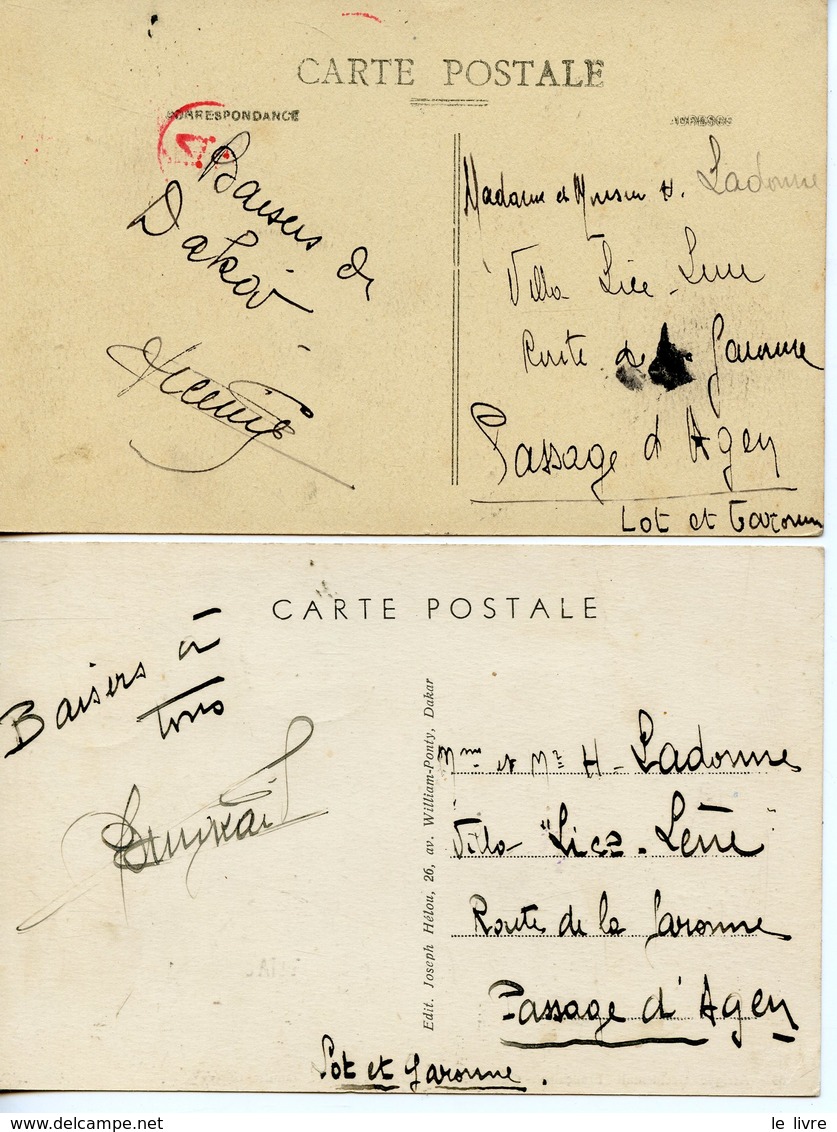 CARTE POSTALE
CORRESPONDANCE
Baisers de
Dakar
Madame et Monsieur H. Ladonne
Villa Lice-Lène
Route de la Garonne
Passage d'Agen
Lot et Garonne
CARTE POSTALE
Baisers à
tous
Edit. Joseph Hélou, 26, av. William-Ponty, Dakar
Mme et Mr H. Ladonne
Villa "Lice-Lène"
Route de la Garonne
Passage d'Agen
Lot et Garonne.
le livre